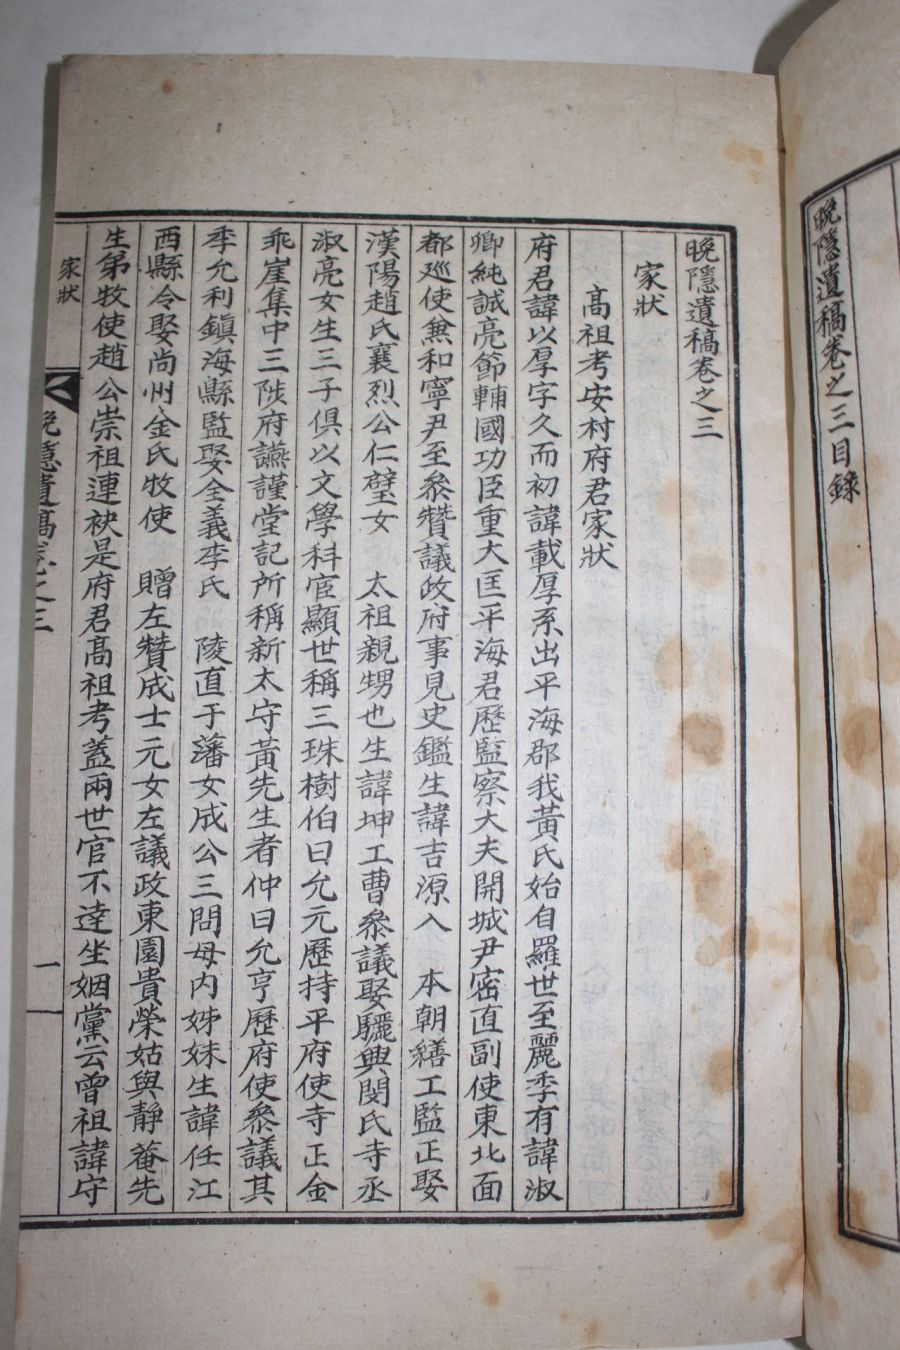 晩隱遺稿卷之三目錄
晩隱遺稿卷之三
家狀
高祖考安村府君家狀
府君諱以厚字久而初諱載厚系出平海郡我黃氏始自羅世至麗季有諱淑
卿純誠亮節輔國功臣重大匡平海君歷監察大夫開城尹密直副使東北面
都廵使兼和寧尹至叅贊議政府事見史鑑生諱吉源入　本朝繕工監正娶
漢陽趙氏襄烈公仁璧女　太祖親甥也生諱坤工曹叅議娶驪興閔氏寺丞
淑亮女生三子俱以文學科宦顯世稱三珠樹伯曰允元歷持平府使寺正金
乖崖集中三陟府讌謹堂記所稱新太守黃先生者仲曰允亨歷府使叅議其
季允利鎭海縣監娶全義李氏　陵直于藩女成公三問母內姊妹生諱任江
西縣令娶尚州金氏牧使　贈左贊成士元女左議政東園貴榮姑與靜菴先
生弟牧使趙公崇祖連袂是府君高祖考蓋兩世官不達坐姻黨云曾祖諱守
家狀
晩隱遺稿卷之三
一